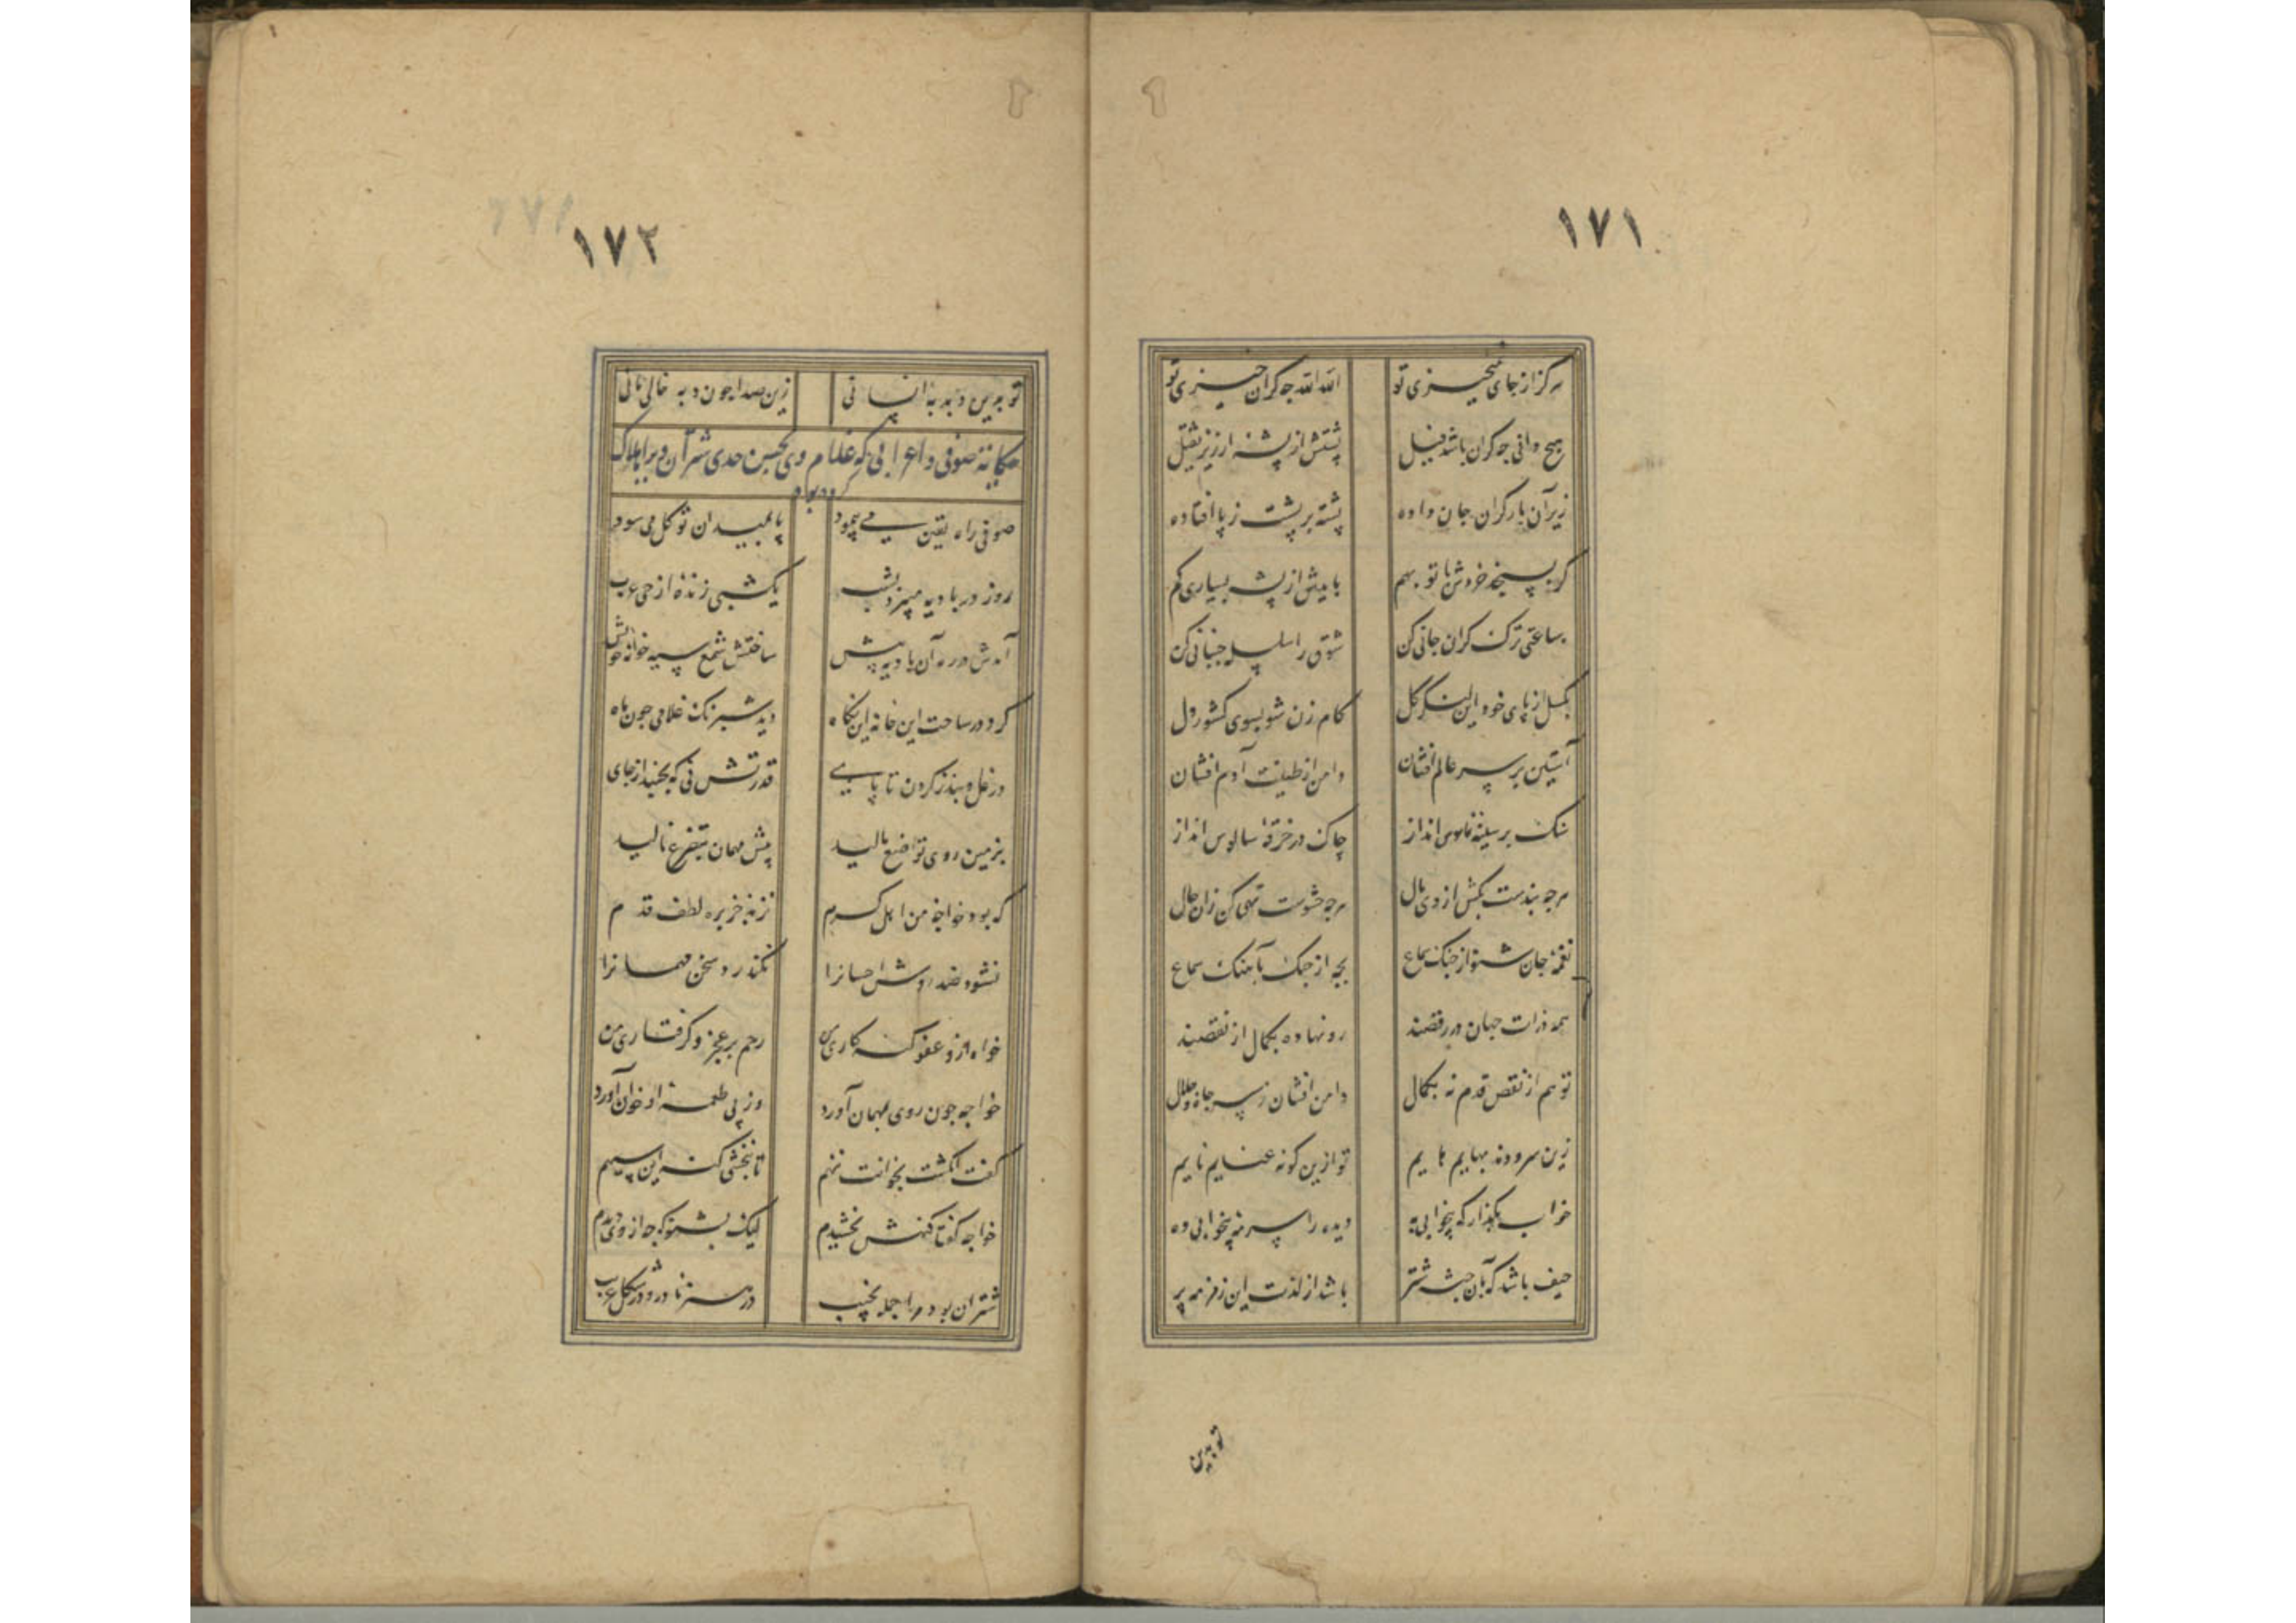 ١٧١
هرگز از جای نمیخیزی تو الله الله چه گران خیزی تو
هیچ دانی چه گران باشد فیل پشتش از پشه ارزیز ثقیل
زیر آن بار گران جان داده پشته بر پشت ز پا افتاده
گر بسنجند خروشش با تو بهم یابیش از پشه بسیاری کم
ساعتی ترک گران جانی کن شوق را سلسله جنبانی کن
بگسل از پای خود این لنگر گل گام زن شو بسوی کشور دل
آستین بر سر عالم افشان دامن از طینت آدم افشان
سنگ بر سینه ناموس انداز چاک در خرقه سالوس انداز
هرچه بندست بکش از وی بال هرچه حشوست تهی کن زان حال
نغمه جان شنو از چنگ سماع بجه از جنگ بآهنگ سماع
همه ذرات جهان در رقصند رو نهاده بکمال از نقصند
تو هم از نقص قدم نه بکمال دامن افشان ز سر جاه و جلال
زین سرودند بهایم هایم تو ازین گونه عنایم نایم
خواب بگذار که بیخوابی به دیده را سرمه بیخوابی ده
حیف باشد که بآن جثه شتر باشد از لذت این زمزمه پر
تو بدین
١٧٢
تو بدین دبدبه انسانی زین صدا چون دبه خالی مانی
حکایت صوفی و اعرابی که غلام وی بحسن حدی شتران ویرا هلاک
کرده بود
صوفی راه یقین می پیمود پا بمیدان توکل می سود
روز در بادیه میبرد بشب یکشبی زنده از حی عرب
آمدش در ره آن بادیه پیش ساختش شمع سیه خانه خویش
کرد در ساحت این خانه نگاه دید شبرنگ غلامی چون ماه
در غل و بند ز گردن تا پای قدرتش نی که بجنبد از جای
بزمین روی تواضع مالید پیش مهمان بتضرع نالید
که بود خواجه من اهل کرم نزند جز بره لطف قدم
نشود ضد روش احسانرا نگذرد سخن مهمانرا
خواه ازو عفو گنه کاری من رحم بر عجز و گرفتاری من
خواجه چون روی بمهمان آورد وز پی طعمه او خوان آورد
گفت انگشت بخوانت ننهم تا نبخشی گنه این سیهم
خواجه گفتا گنهش بخشیدم لیک بشنو که چه از وی دیدم
شتران بود مرا جمله نجیب در هنر نادر و در شکل غریب